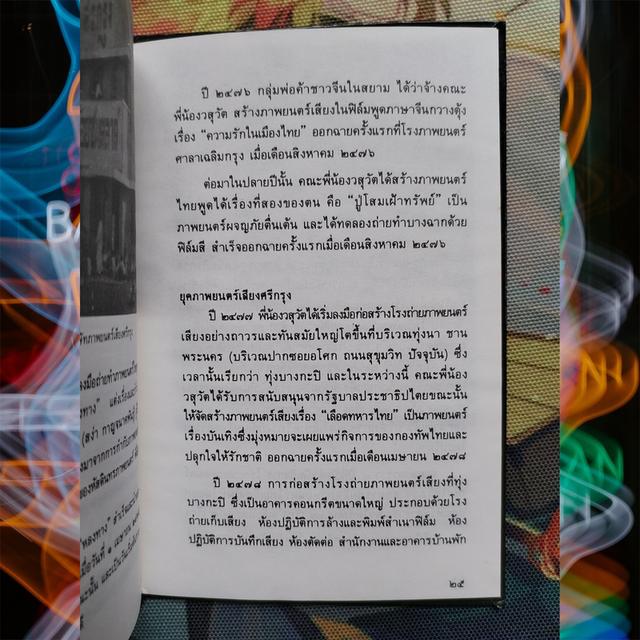 ปี ๒๔๗๖ กลุ่มพ่อค้าชาวจีนในสยาม ได้ว่าจ้างคณะ
พี่น้องวสุวัต สร้างภาพยนตร์เสียงในฟิล์มพูดภาษาจีนกวางตุ้ง
เรื่อง “ความรักในเมืองไทย” ออกฉายครั้งแรกที่โรงภาพยนตร์
ศาลาเฉลิมกรุง เมื่อเดือนสิงหาคม ๒๔๗๖
ต่อมาในปลายปีนั้น คณะพี่น้องวสุวัตได้สร้างภาพยนตร์
ไทยพูดได้เรื่องที่สองของตน คือ “ปู่โสมเฝ้าทรัพย์” เป็น
ภาพยนตร์ผจญภัยตื่นเต้น และได้ทดลองถ่ายทำบางฉากด้วย
ฟิล์มสี สำเร็จออกฉายครั้งแรกเมื่อเดือนสิงหาคม ๒๔๗๖
ยุคภาพยนตร์เสียงศรีกรุง
ปี ๒๔๗๗ พี่น้องวสุวัตได้เริ่มลงมือก่อสร้างโรงถ่ายภาพยนตร์
เสียงอย่างถาวรและทันสมัยใหญ่โตขึ้นที่บริเวณทุ่งนา ชาน
พระนคร (บริเวณปากซอยอโศก ถนนสุขุมวิท ปัจจุบัน) ซึ่ง
เวลานั้นเรียกว่า ทุ่งบางกะปิ และในระหว่างนี้ คณะพี่น้อง
วสุวัตได้รับการสนับสนุนจากรัฐบาลประชาธิปไตยขณะนั้น
ให้จัดสร้างภาพยนตร์เสียงเรื่อง “เลือดทหารไทย” เป็นภาพยนตร์
เรื่องบันเทิงซึ่งมุ่งหมายจะเผยแพร่กิจการของกองทัพไทยและ
ปลุกใจให้รักชาติ ออกฉายครั้งแรกเมื่อเดือนเมษายน ๒๔๗๘
ปี ๒๔๗๘ การก่อสร้างโรงถ่ายภาพยนตร์เสียงที่ทุ่ง
บางกะปิ ซึ่งเป็นอาคารคอนกรีตขนาดใหญ่ ประกอบด้วยโรง
ถ่ายเก็บเสียง ห้องปฏิบัติการล้างและพิมพ์สำเนาฟิล์ม ห้อง
ปฏิบัติการบันทึกเสียง ห้องตัดต่อ สำนักงานและอาคารบ้านพัก
๒๕